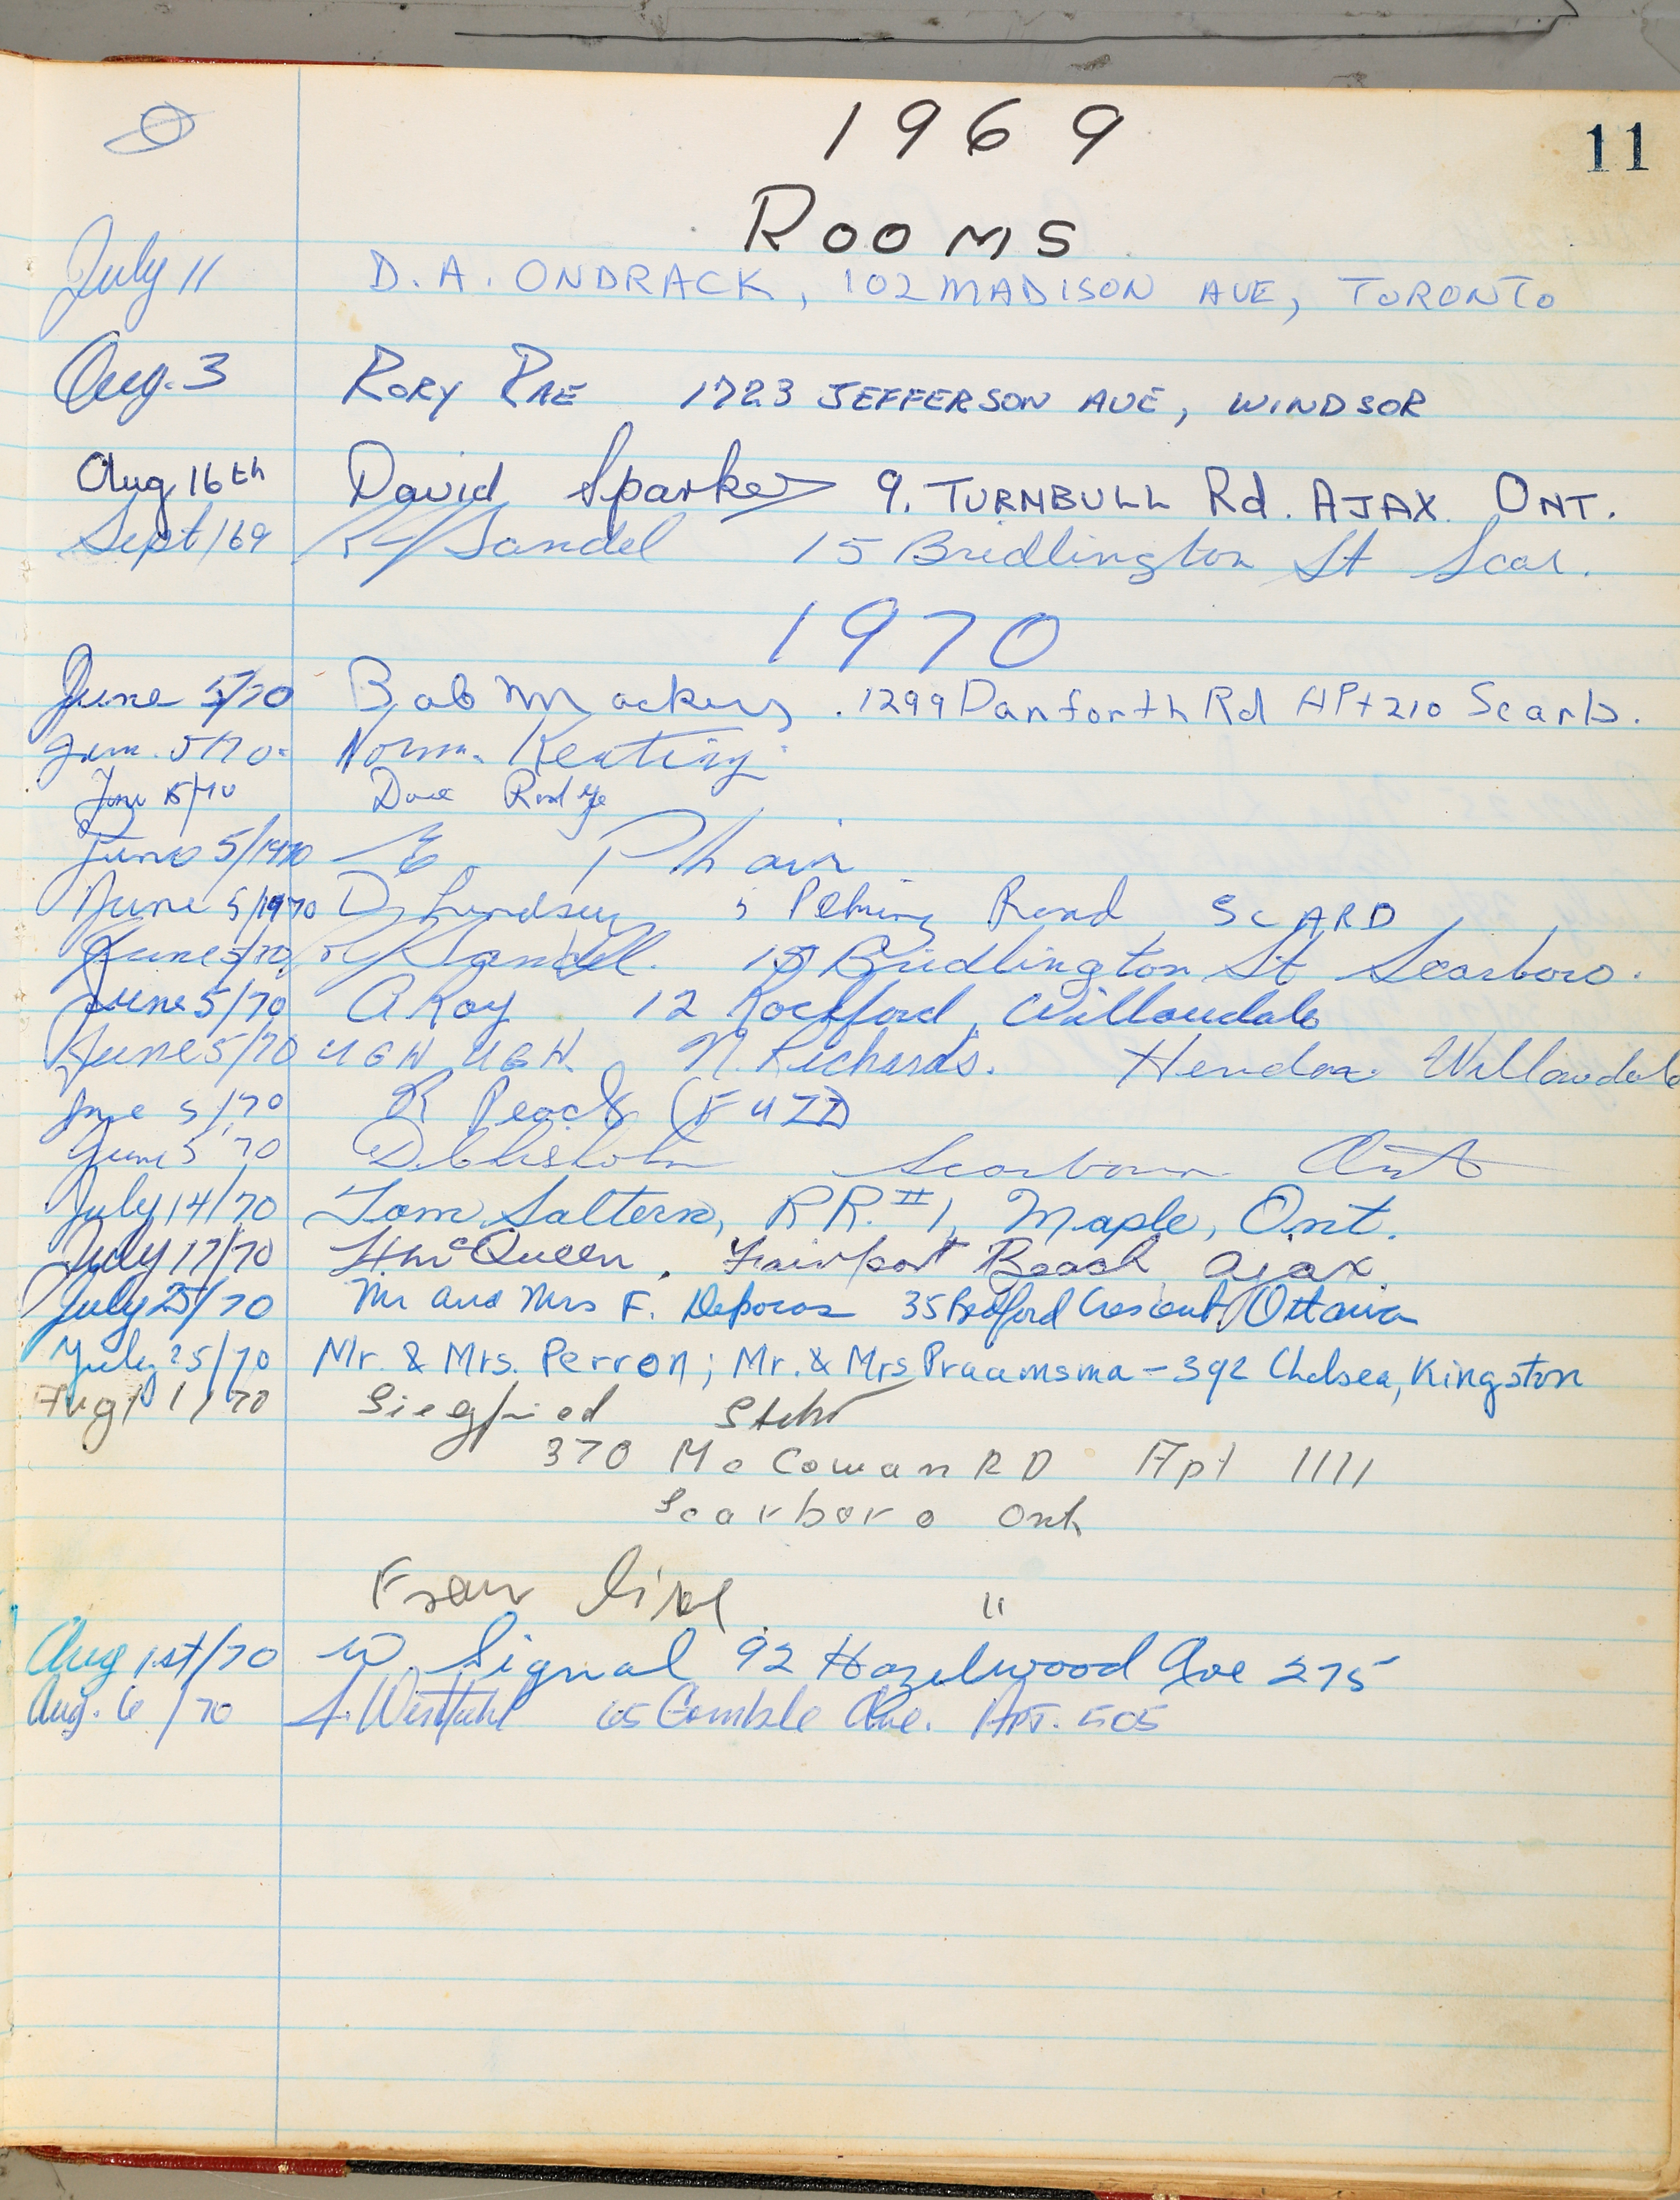 1969
11
ROOMS
July 11 D. A. ONDRACK, 102 MADISON AVE, TORONTO
Aug. 3 RORY RAE 1723 JEFFERSON AVE, WINDSOR
Aug 16th David Sparkes 9, TURNBULL Rd. AJAX ONT.
Sept/69 Sandel 15 Bridlington St Scar.
1970
June 5/70 Bob . 1299 Danforth Rd APt 210 Scarb.
Jun. 5/70 Norm. Keating
June 5/70 Dave
June 5/1970 E. Phair
June 5/1970 D Lindsay 5 Road SCARD
June 5/70 Sandell. 15 Bridlington St Scarboro.
June 5/70 A Roy 12 Rockford, Willowdale
June 5/70 UGH UGH N. Richards. Hendon Willowdale
June 5/70 R Peach (FUZZ)
June 5 70 D. Chisholm Ont
July 14/70 Tom Saltern, RR. #1, Maple, Ont.
July 17/70 McQueen, Fairport Beach Ajax.
July 25/70 Mr and Mrs F. 35 Bedford Crescent, Ottawa
July 25/70 Mr. & Mrs. Perron; Mr. & Mrs Praamsma – 392 Chelsea, Kingston
Aug 1/70 Siegfried
370 Mc Cowan RD Apt 1111
Scarboro Ont
"
Aug 1st/70 W. Signal 92 Hazelwood Ave 275
Aug. 6/70 65 Gamble Ave. APT. 505